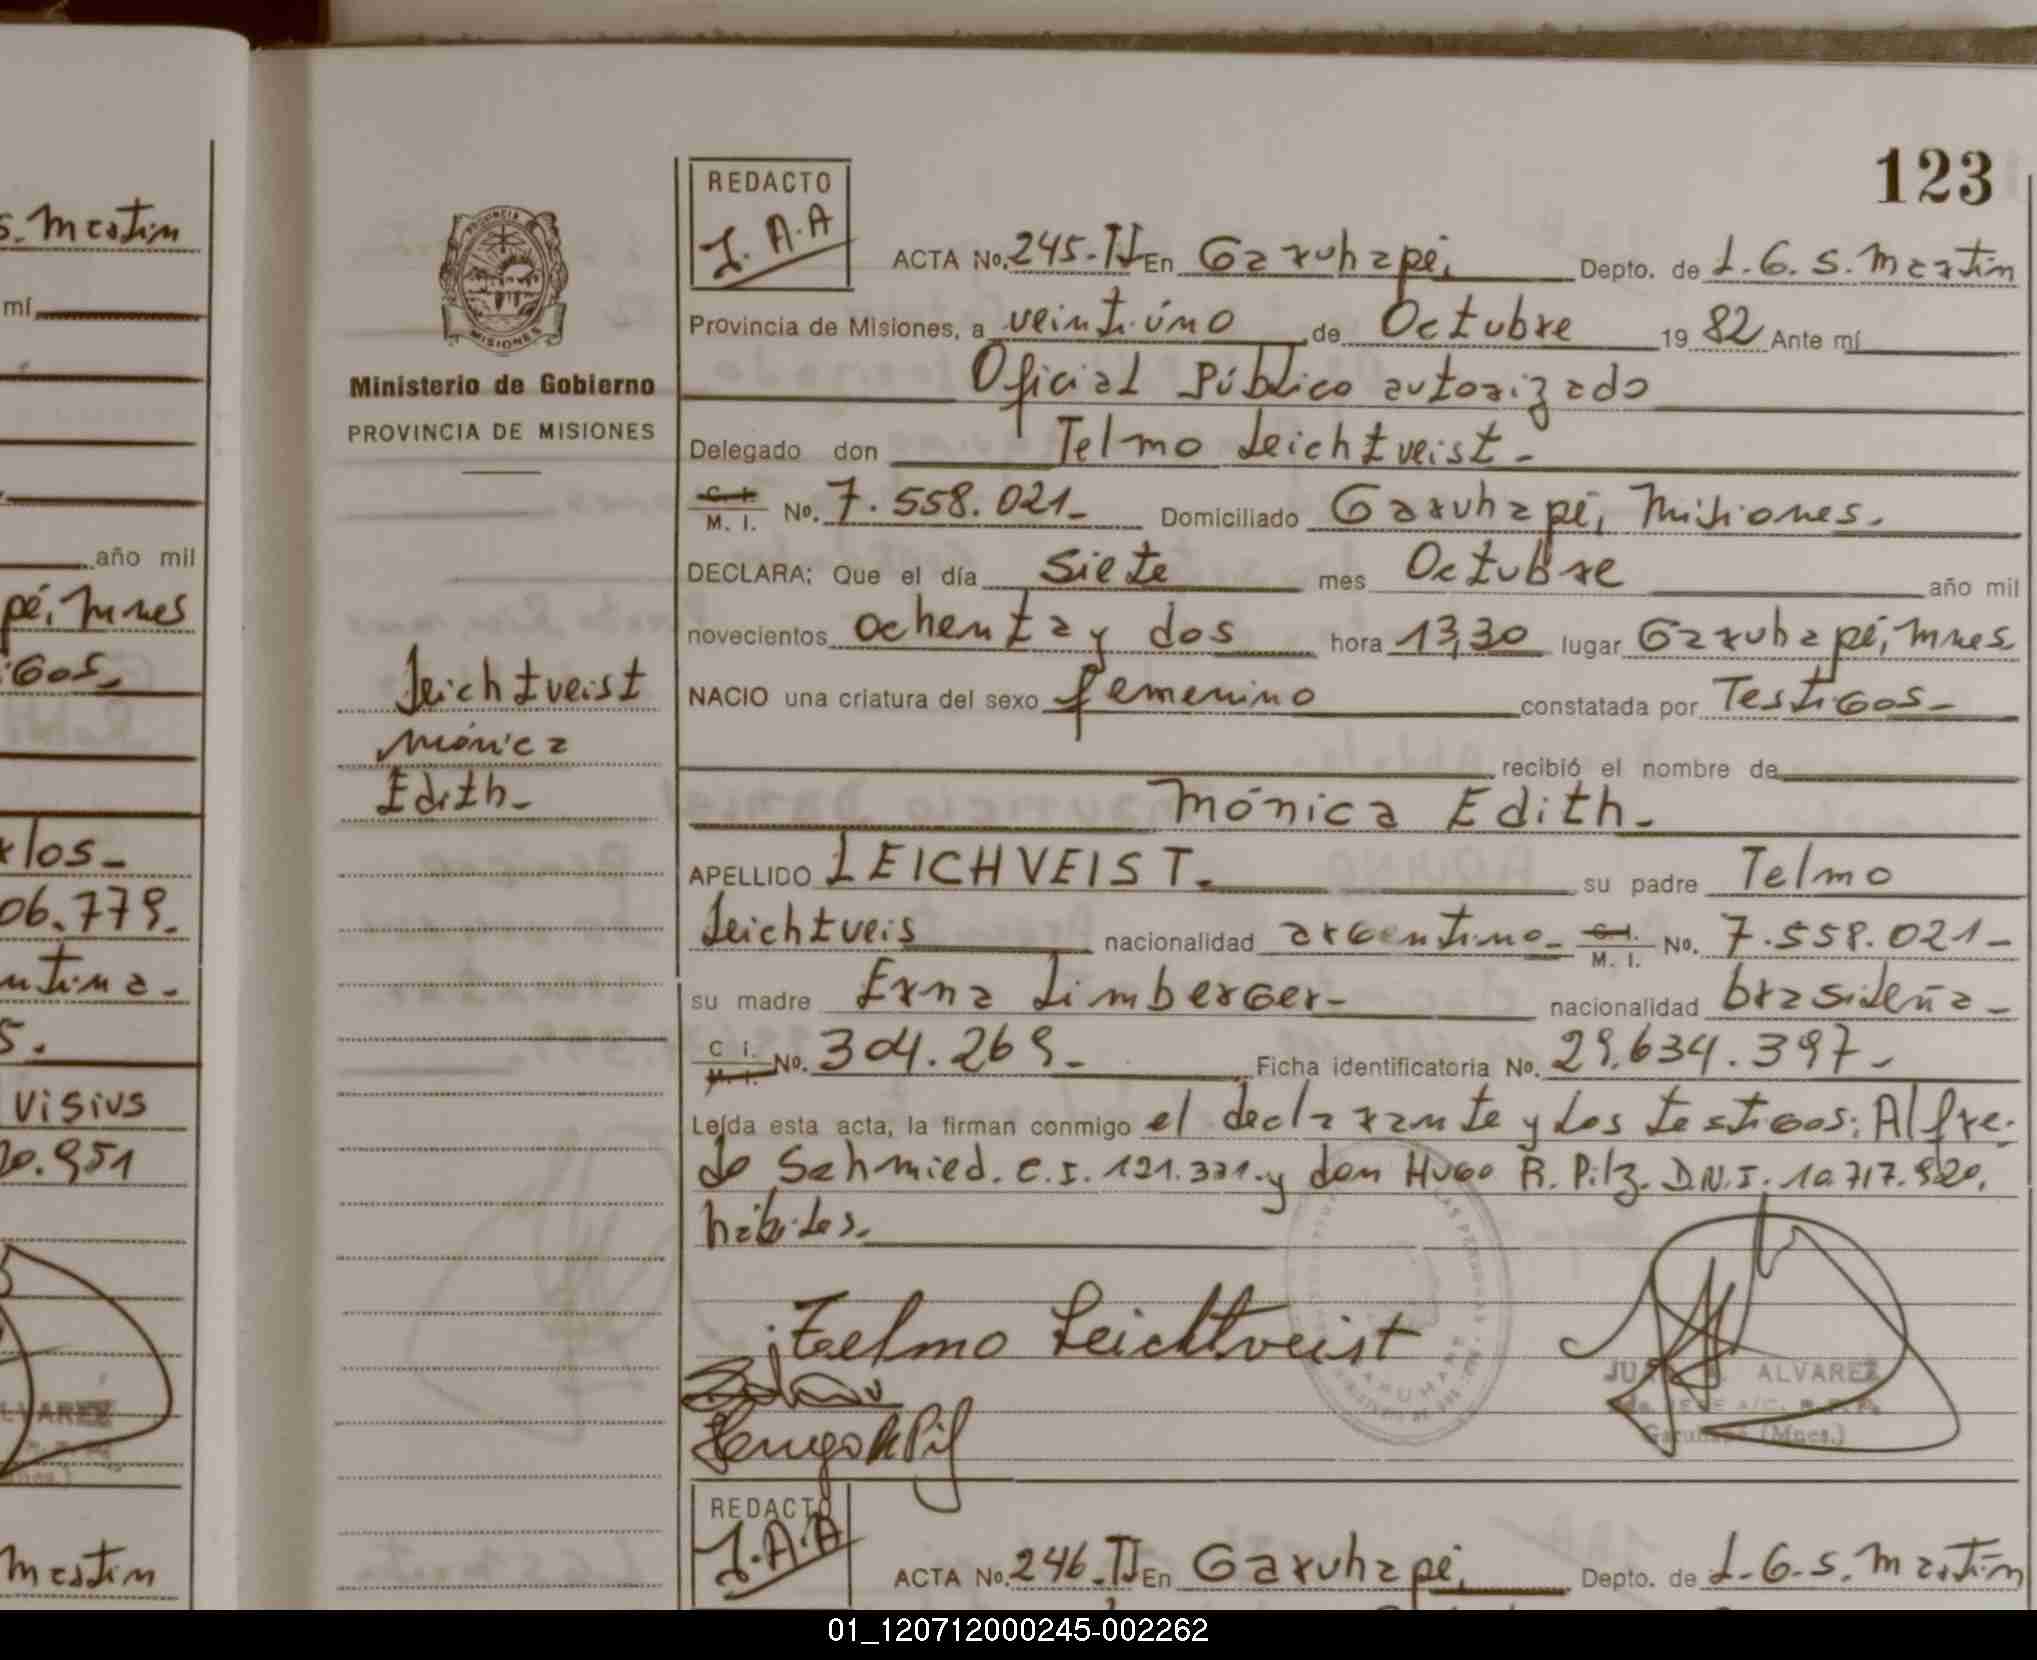 123
s. Martin
mí
año mil
pé, Mnes
rlos.
06.779.
5.
Visius
20.951
Martin
PROVINCIA
MISIONES
Ministerio de Gobierno
PROVINCIA DE MISIONES
Leichtveist
Mónica
Edith.
REDACTO
J. A. A
ACTA No. 245. TI En Garuhapé, Depto. de L. G. S. Martin
Provincia de Misiones, a veintiúno de Octubre 19 82 Ante mí
Oficial Público autorizado
Delegado don Telmo Leichtveist.
C. I. M. I. No. 7.558.021. Domiciliado Garuhapé, Misiones.
DECLARA: Que el día siete mes Octubre año mil
novecientos ochenta y dos hora 13,30 lugar Garuhapé, Mnes
NACIO una criatura del sexo femenino constatada por Testigos.
recibió el nombre de
Mónica Edith.
APELLIDO LEICHVEIST. su padre Telmo
Leichtveis nacionalidad argentino. C. I. M. I. No. 7.558.021.
su madre Erna Limberger. nacionalidad brasileña.
C I. M. I. No. 304.269. Ficha identificatoria No. 29.634.397.
Leída esta acta, la firman conmigo el declarante y los testigos: Alfre-
do Schmied. C.I. 121.331. y don Hugo R. Pilz. D.N.I. 10.717.920.
hábiles.
Telmo Leichtveist
ALVAREZ
Garuhapé (Mnes.)
REDACTO
J. A. A
ACTA No. 246. TI En Garuhapé, Depto. de L. G. S. Martin
01_120712000245-002262